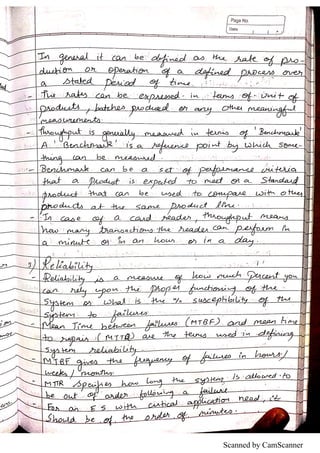 Page No.
Date
In general it can be defined as the rate of pro-
duction or operation of a defined process over
a stated period of time.
- The rates can be expressed in terms of unit of
products, batches produced or any other meaningful
measurements
- Throughput is generally measured in terms of 'Benchmark'
A 'Benchmark' is a reference point by which some-
thing can be measured
- Benchmark can be a set of performance criteria
that a product is expected to meet or a standard
product that can be used to compare with other
products at the same product line.
- In case of a card reader, throughput means
how many transactions the reader can perform in
a minute or in an hour or in a day.
3) Reliability
- Reliability is a measure of how much percent you
can rely upon the proper functioning of the
system or what is the % susceptibility of the
system to failures.
- Mean Time between failures (MTBF) and mean time
to repair (MTTR) are the terms used in defining
system reliability
- MTBF gives the frequency of failures in hours/
weeks/months
- MTTR specifies how long the system is allowed to
be out of order following a failure
- For an ES with critical application need, it
should be of the order of minutes.
Scanned by CamScanner